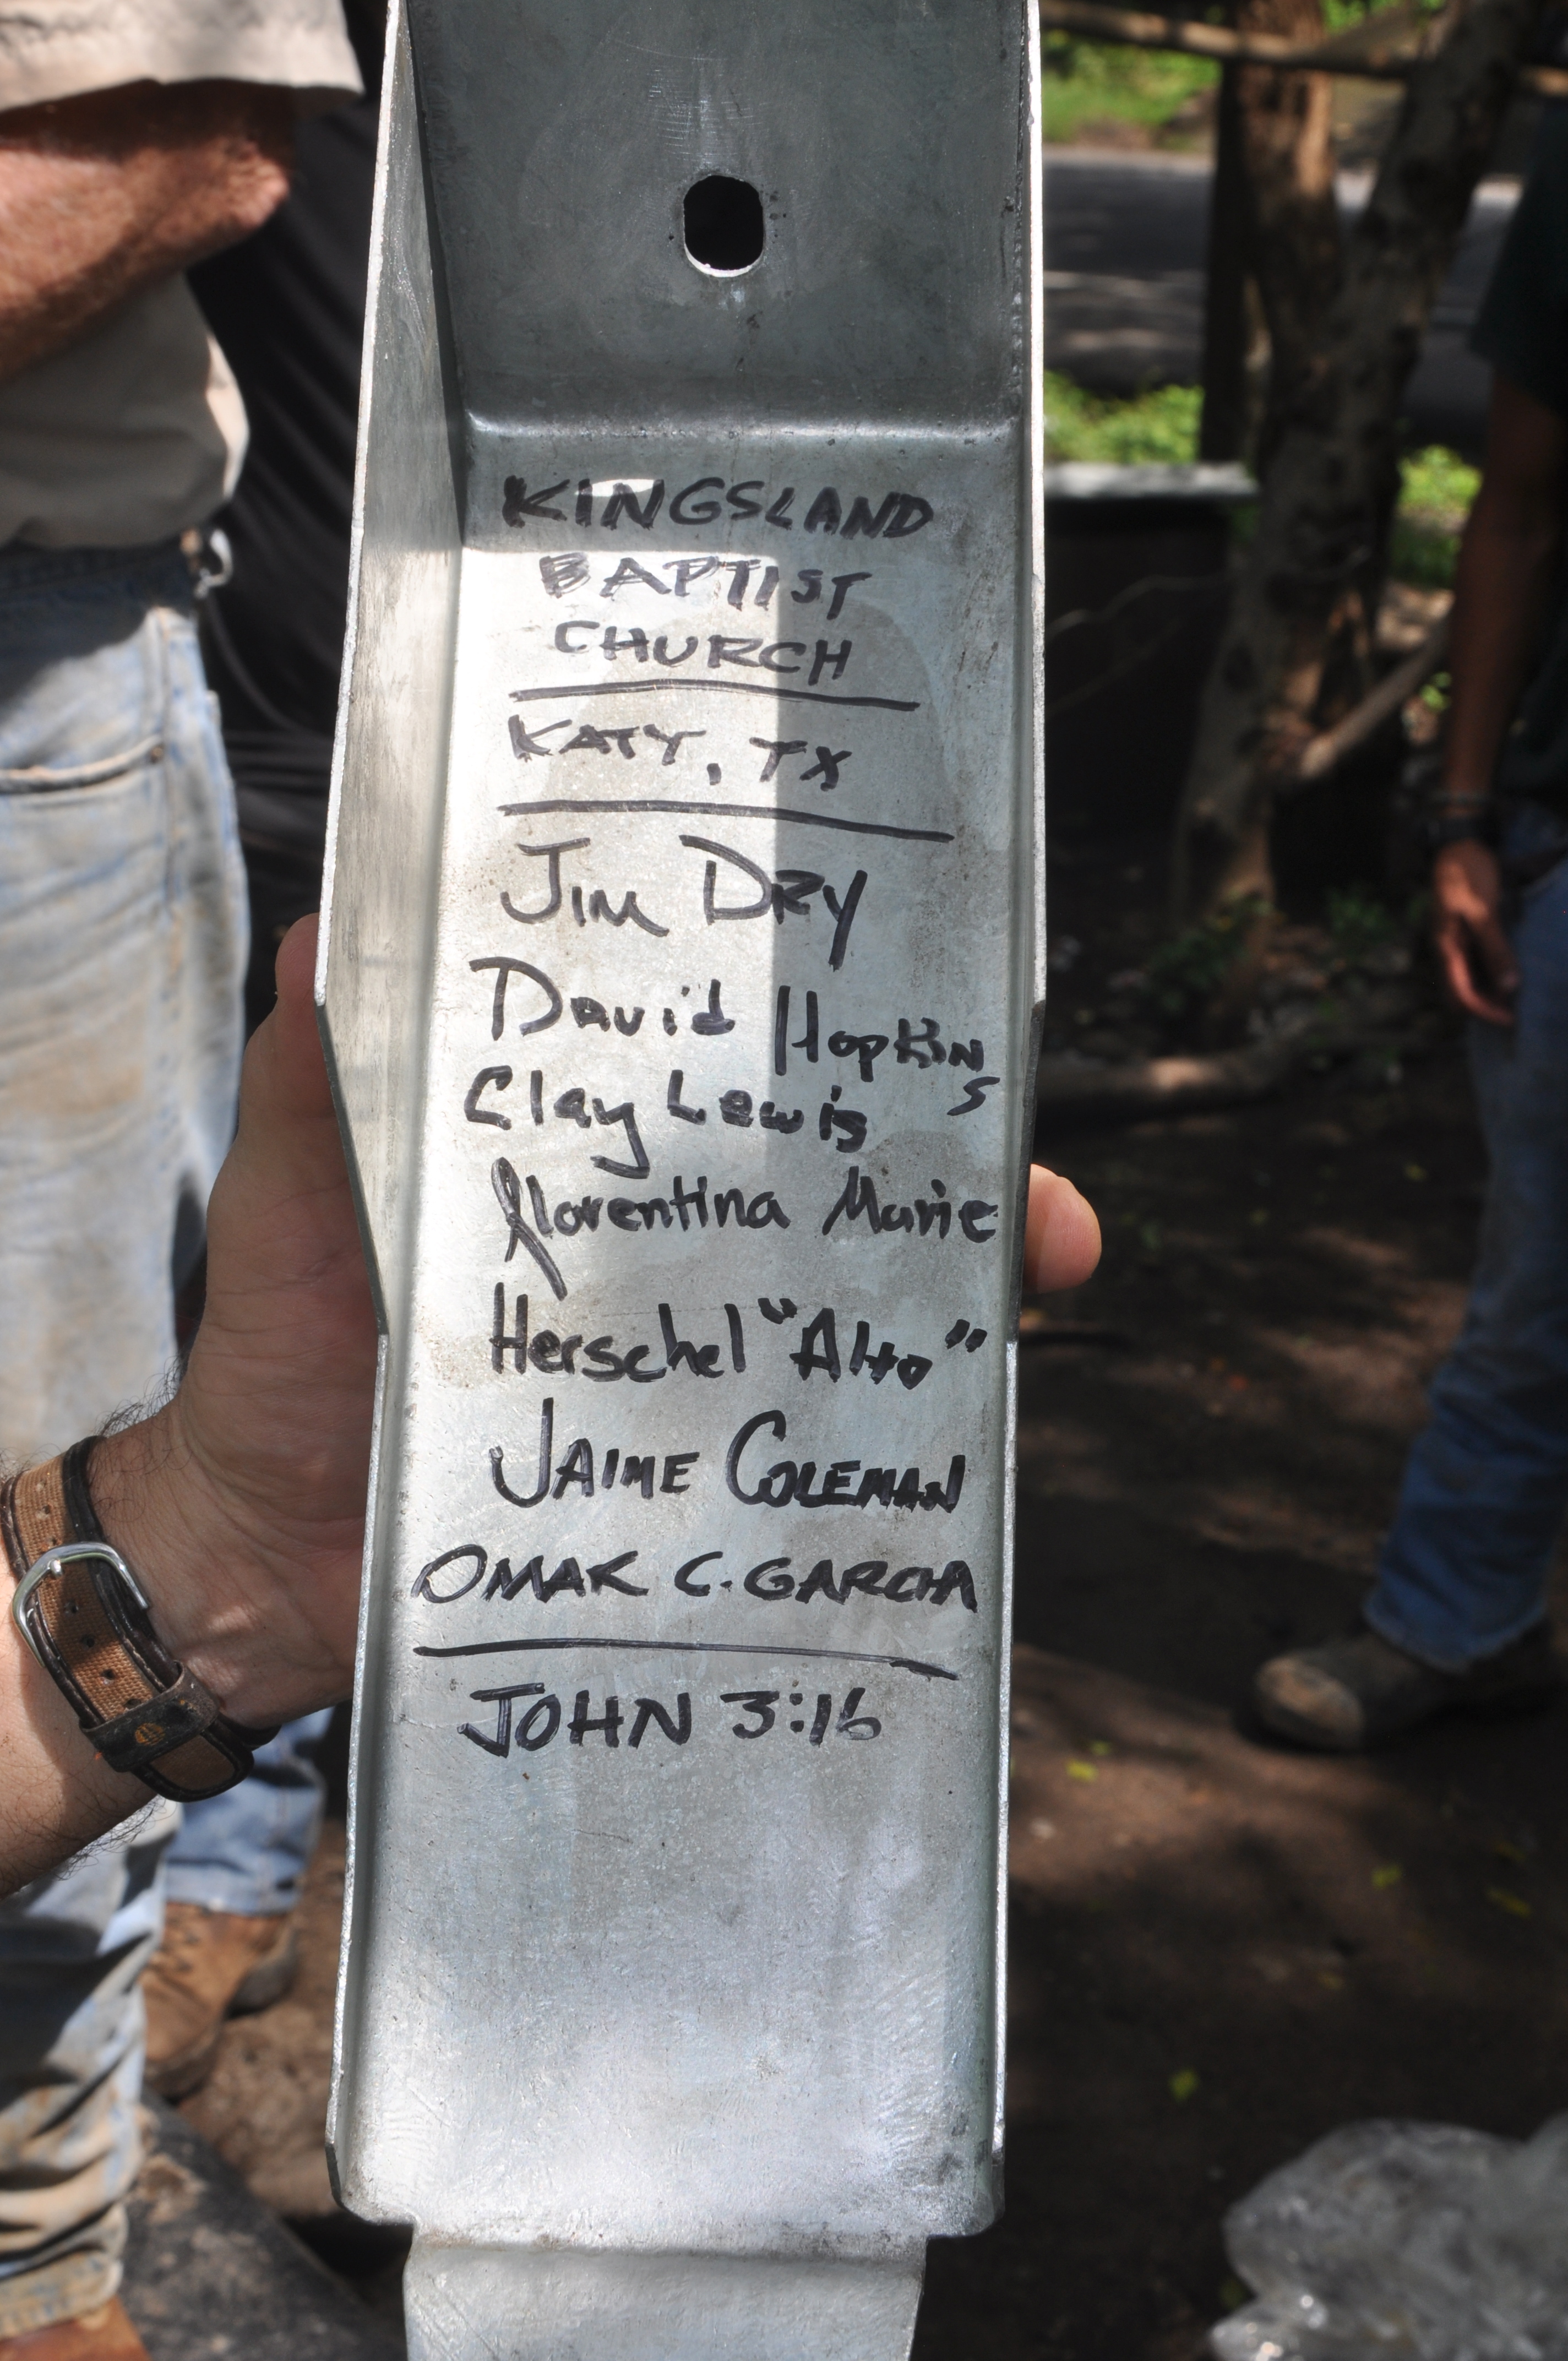 KINGSLAND
BAPTIST
CHURCH
KATY, TX
Jim DRY
David Hopkins
Clay Lewis
florentina Marie
Herschel "Alto"
JAIME COLEMAN
OMAR C. GARCIA
JOHN 3:16